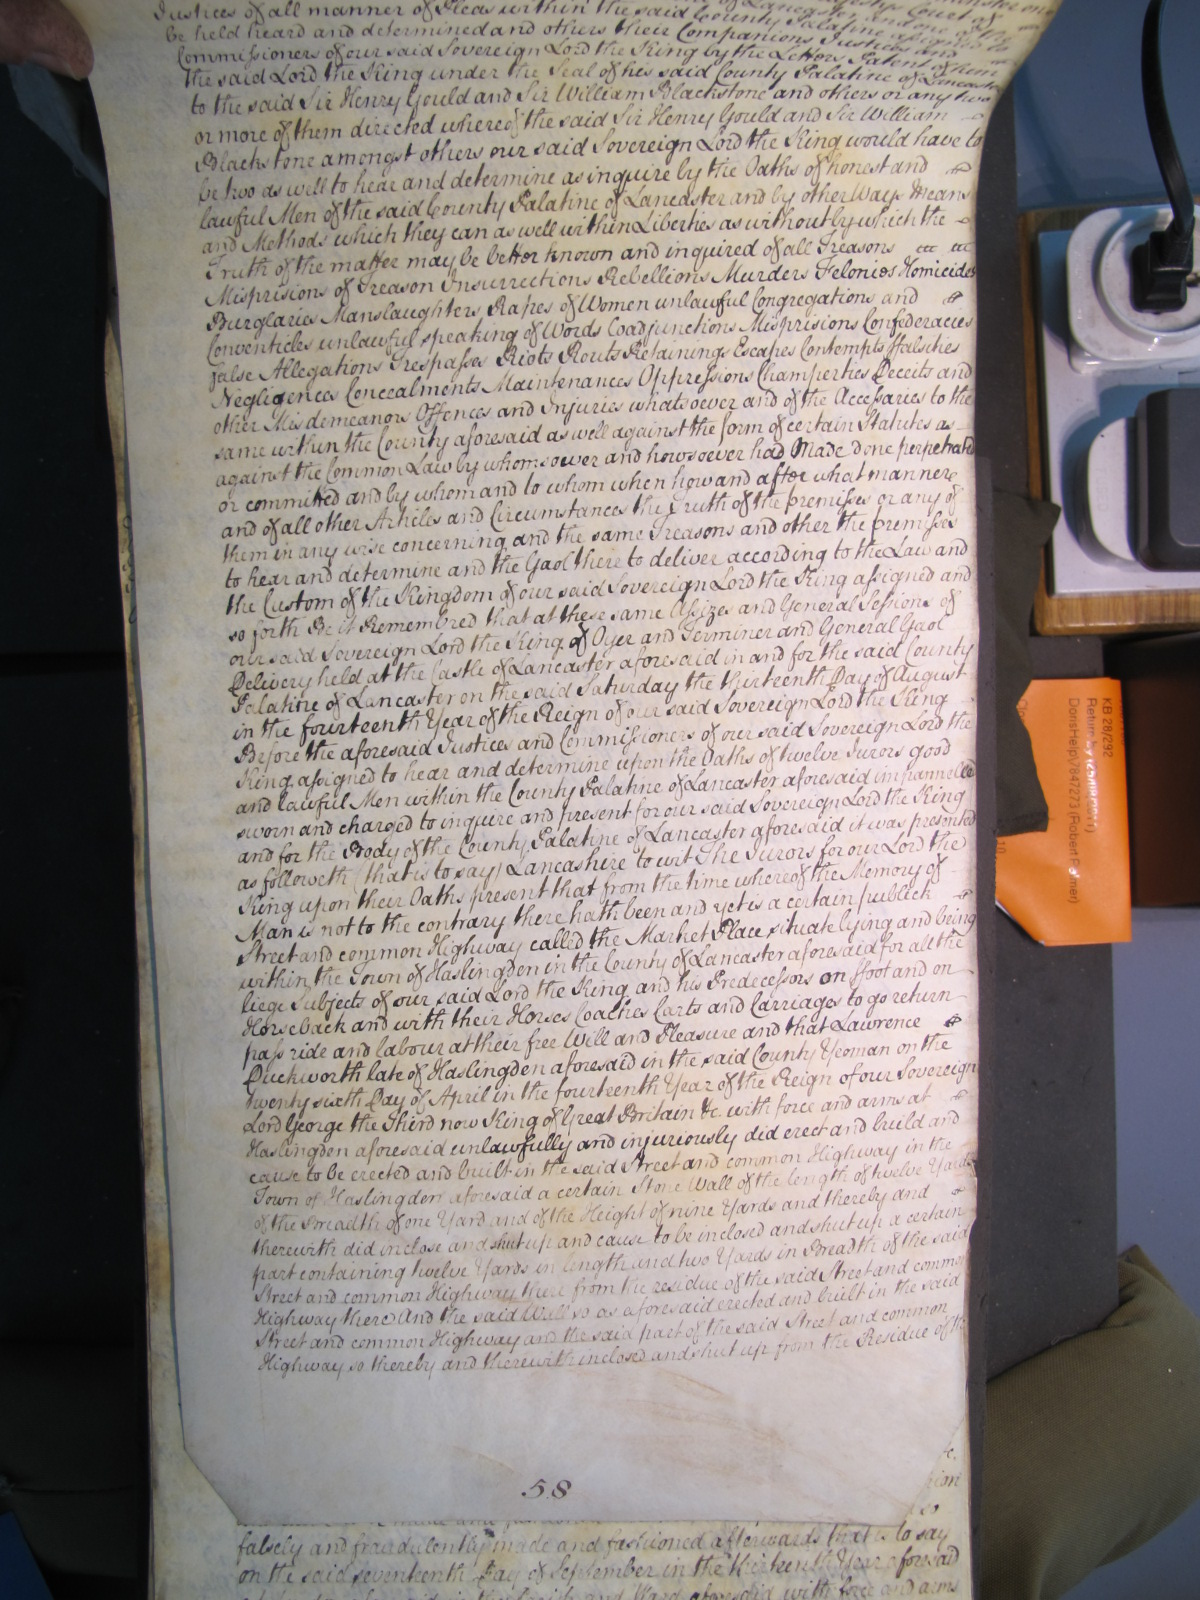 Justices of all manner of Pleas within the said County Palatine of Lancaster
be held heard and determined and others their Companions Justices and
Commissioners of our said Sovereign Lord the King by the Letters Patent of him
the said Lord the King under the Seal of his said County Palatine of Lancaster
to the said Sir Henry Gould and Sir William Blackstone and others or any two
or more of them directed whereof the said Sir Henry Gould and Sir William
Blackstone amongst others our said Sovereign Lord the King would have to
be two as well to hear and determine as inquire by the Oaths of honest and
lawful Men of the said County Palatine of Lancaster and by other Ways Means
and Methods which they can as well within Liberties as without by which the
Truth of the matter may be better known and inquired of all Treasons
Misprisions of Treason Insurrections Rebellions Murders Felonies Homicides
Burglaries Manslaughters Rapes of Women unlawful Congregations and
Conventicles unlawful speaking of Words Coadjunctions Misprisions Confederacies
false Allegations Trespasses Riots Routs Retainings Escapes Contempts ffalsities
Negligences Concealments Maintenances Oppressions Champerties Deceits and
other Misdemeanors Offences and Injuries whatsoever and of the Accessaries to the
same within the County aforesaid as well against the form of certain Statutes as
against the Common Law by whomsoever and howsoever had Made done perpetrated
or committed and by whom and to whom when how and after what manner
and of all other Articles and Circumstances the Truth of the premisses or any of
them in any wise concerning and the same Treasons and other the premisses
to hear and determine and the Gaol there to deliver according to the Law and
the Custom of the Kingdom of our said Sovereign Lord the King assigned and
so forth Be it Remembred that at these same Assizes and General Sessions of
our said Sovereign Lord the King of Oyer and Terminer and General Gaol
Delivery held at the Castle of Lancaster aforesaid in and for the said County
Palatine of Lancaster on the said Saturday the thirteenth Day of August
in the fourteenth Year of the Reign of our said Sovereign Lord the King
Before the aforesaid Justices and Commissioners of our said Sovereign Lord the
King assigned to hear and determine upon the Oaths of twelve Jurors good
and lawful Men within the County Palatine of Lancaster aforesaid impannelled
sworn and charged to inquire and present for our said Sovereign Lord the King
and for the Body of the County Palatine of Lancaster aforesaid it was presented
as followeth (that is to say) Lancashire to wit The Jurors for our Lord the
King upon their Oaths present that from the time whereof the Memory of
Man is not to the contrary there hath been and yet is a certain publick
Street and common Highway called the Market Place situate lying and being
within the Town of Haslingden in the County of Lancaster aforesaid for all the
liege Subjects of our said Lord the King and his Predecessors on ffoot and on
Horseback and with their Horses Coaches Carts and Carriages to go return
pass ride and labour at their free Will and Pleasure and that Lawrence
Duckworth late of Haslingden aforesaid in the said County Yeoman on the
twenty sixth Day of April in the fourteenth Year of the Reign of our Sovereign
Lord George the Third now King of Great Britain &c. with force and arms at
Haslingden aforesaid unlawfully and injuriously did erect and build and
cause to be erected and built in the said Street and common Highway in the
Town of Haslingden aforesaid a certain Stone Wall of the length of twelve Yards
of the Breadth of one Yard and of the Height of nine Yards and thereby and
therewith did inclose and shut up and cause to be inclosed and shut up a certain
part containing twelve Yards in length and two Yards in Breadth of the said
Street and common Highway there from the residue of the said Street and common
Highway there And the said Wall so as aforesaid erected and built in the said
Street and common Highway and the said part of the said Street and common
Highway so thereby and therewith inclosed and shut up from the Residue of the
58
falsely and fraudulently made and fashioned afterwards that is to say
on the said seventeenth Day of September in the thirteenth Year aforesaid
and Ward aforesaid with force and arms
KB 28/292
Return by
DorisHelp\784\7273 (Robert Palmer)